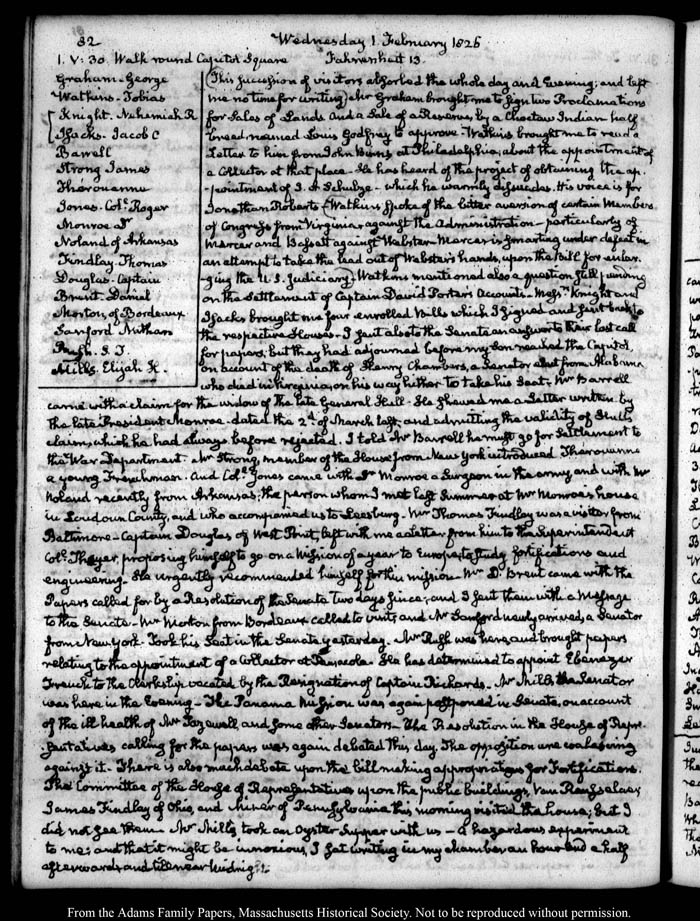 82 Wednesday 1. February 1826
I. V: 30. Walk round Capitol Square Fahrenheit 13.
Graham - George
Watkins - Tobias
Knight. Nehemiah R
Isacks. Jacob C
Barrell
Strong James
Therouenne
Jones. Col. Roger
Monroe Dr
Noland of Arkansas
Findlay Thomas
Douglas - Captain
Brent Daniel
Morton, of Bordeaux
Sanford Nathan
Rush. S. T.
Mills. Elijah H.
(This succession of visitors absorbed the whole day and Evening; and left
me no time for writing) Mr Graham brought me to sign two Proclamations
for Sales of Lands and a Sale of a Reserve, by a Choctaw Indian half
breed named Louis Godfrey to approve - Watkins brought me to read a
Letter to him from John Binns at Philadelphia, about the appointment of
a Collector at that place - He has heard of the project of obtaining the ap-
-pointment of J. A. Schulze - which he warmly dissuades. His voice is for
Jonathan Roberts - (Watkins spoke of the bitter aversion of certain Members
of Congress from Virginia, against the Administration - particularly of
Mercer and Bassett against Webster - Mercer is smarting under defeat in
an attempt to take the lead out of Webster's hands, upon the Bill for enlar-
-ging the U.S. Judiciary) Watkins mentioned also a question still pending
on the Settlement of Captain David Porter's Accounts - Messrs Knight and
Isacks brought me four enrolled Bills which I signed and sent back to
the respective Houses - I sent also to the Senate an answer to their last call
for papers, but they had adjourned before my Son reached the Capitol,
on account of the death of Henry Chambers, a Senator elect from Alabama
who died in Virginia, on his way hither to take his Seat. Mr Barrell
came with a claim for the widow of the late General Hull - He shewed me a Letter written by
the late President Monroe - dated the 2d of March last, and admitting the validity of Hull's
claim, which he had always before rejected. I told Mr Barrell he must go for Settlement to
the War Department. Mr Strong, member of the House from New York introduced Therouenne
a young Frenchman. And Col. Jones came with Dr Monroe a Surgeon in the army, and with Mr
Noland recently from Arkansas; the person whom I met last Summer at Mr Monroe's house
in Loudoun County, and who accompanied us to Leesburg. Mr Thomas Findlay was a visitor from
Baltimore - Captain Douglas of West Point, left with me a Letter from him to the Superintendent
Col. Thayer, proposing himself to go on a Mission of a year to Europe to study fortifications and
engineering - He urgently recommended himself for this mission - Mr D. Brent came with the
Papers called for by a Resolution of the Senate two days since; and I sent them with a Message
to the Senate - Mr Morton from Bordeaux called to visit; and Mr Sanford newly arrived, a Senator
from New York. Took his Seat in the Senate yesterday. Mr Rush was here, and brought papers
relating to the appointment of a Collector at Pensacola. He has determined to appoint Ebenezer
French to the Clerkship vacated by the Resignation of Captain Richards. Mr Mills, the Senator
was here in the Evening - The Panama Mission was again postponed in Senate, on account
of the ill health of Mr Tazewell, and some other Senators - The Resolution in the House of Repre-
-sentatives calling for the papers was again debated this day. The opposition are coalescing
against it. There is also much debate upon the bill making appropriations for Fortifications.
The Committee of the House of Representatives upon the public buildings, Van Rensselaer,
James Findlay of Ohio, and Miner of Pennsylvania this morning visited the house; but I
did not see them - Mr Mills took an Oyster Supper with us - A hazardous experiment
to me; and that it might be innoxious, I sat writing in my chamber an hour and a half
afterwards, and till near Midnight.
From the Adams Family Papers, Massachusetts Historical Society. Not to be reproduced without permission.